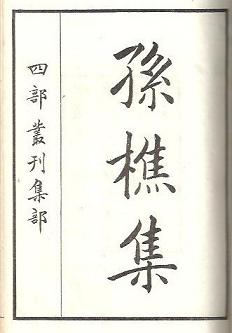 孫樵集
四部叢刊集部